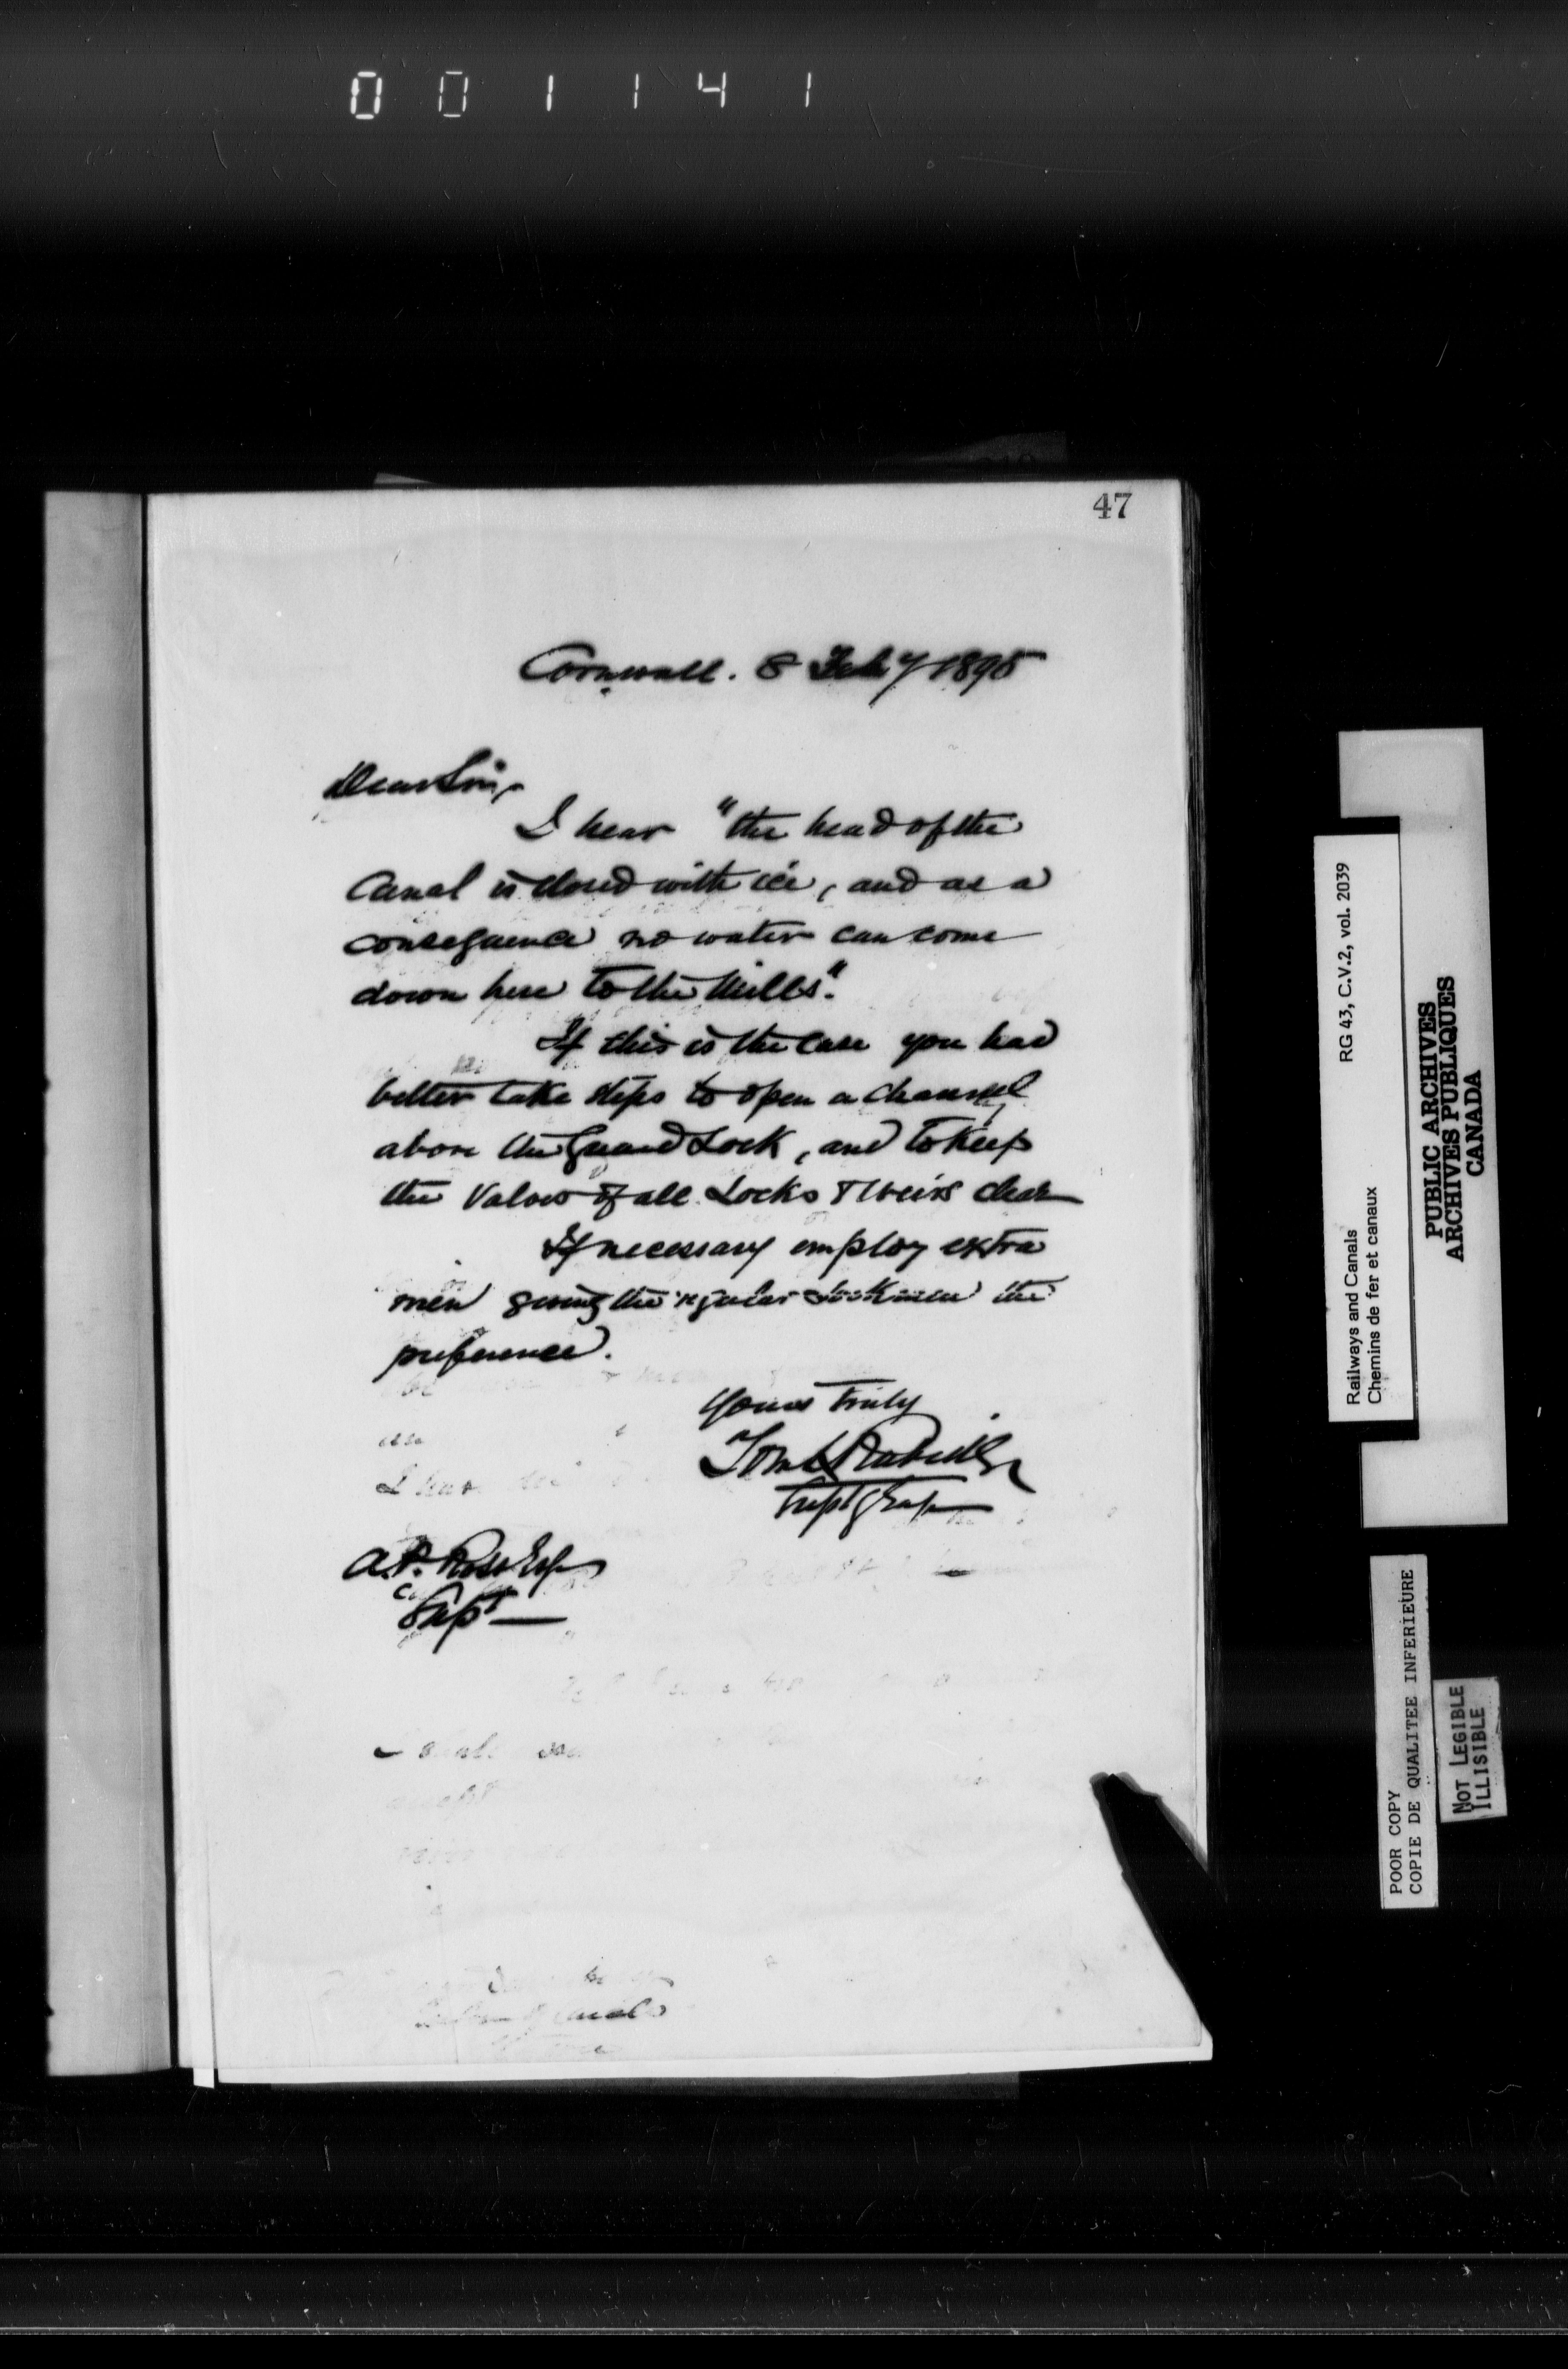 001141
47
Cornwall. 8 Feby 1895
Dear Sir,
I hear "the head of the
Canal is closed with ice, and as a
consequence no water can come
down here to the Mills".
If this is the case you had
better take steps to open a channel
above the Guard Lock, and to keep
the Valves of all Locks & Weirs clear
If necessary employ extra
men giving the regular Lockmen the
preference.
Yours truly
Supt g Eng
A. P. Ross Esq
Supt
Railways and Canals RG 43, C.V.2, vol. 2039
Chemins de fer et canaux
PUBLIC ARCHIVES
ARCHIVES PUBLIQUES
CANADA
POOR COPY
COPIE DE QUALITEE INFERIEURE
NOT LEGIBLE
ILLISIBLE